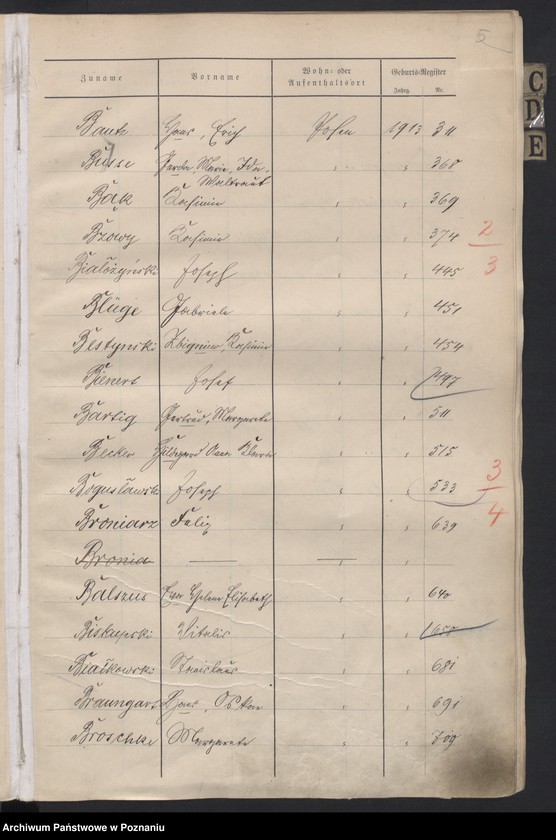 5
Zuname Vorname Wohn- oder Aufenthaltsort Geburts-Register
Jahrg. Nr.
Bautz Hans, Erich Posen 1913 311
Busse Gerda, Marie, Ida, Waltraut " " 368
Bąk Kasimir " " 369
Bzowy Kasimir " " 374
2/3
Białożyński Joseph " " 445
Blüge Gabriele " " 451
Bestynski Zbigniew, Kasimir " " 454
Bienert Josef " " 497
Bartig Gertrud, Margarete " " 511
Becker Hildegard Anna Klara " " 515
Bogusławski Joseph " " 533
3/4
Broniarz Felix " " 639
Bronia — — "
Balszus Eva Helene Elisabeth " " 640
Biskupski Vitalis " "
Białkowski Stanislaus " " 681
Braungart Hans, Oskar " " 691
Broschke Margarete " " 709
C
D
E
Archiwum Państwowe w Poznaniu